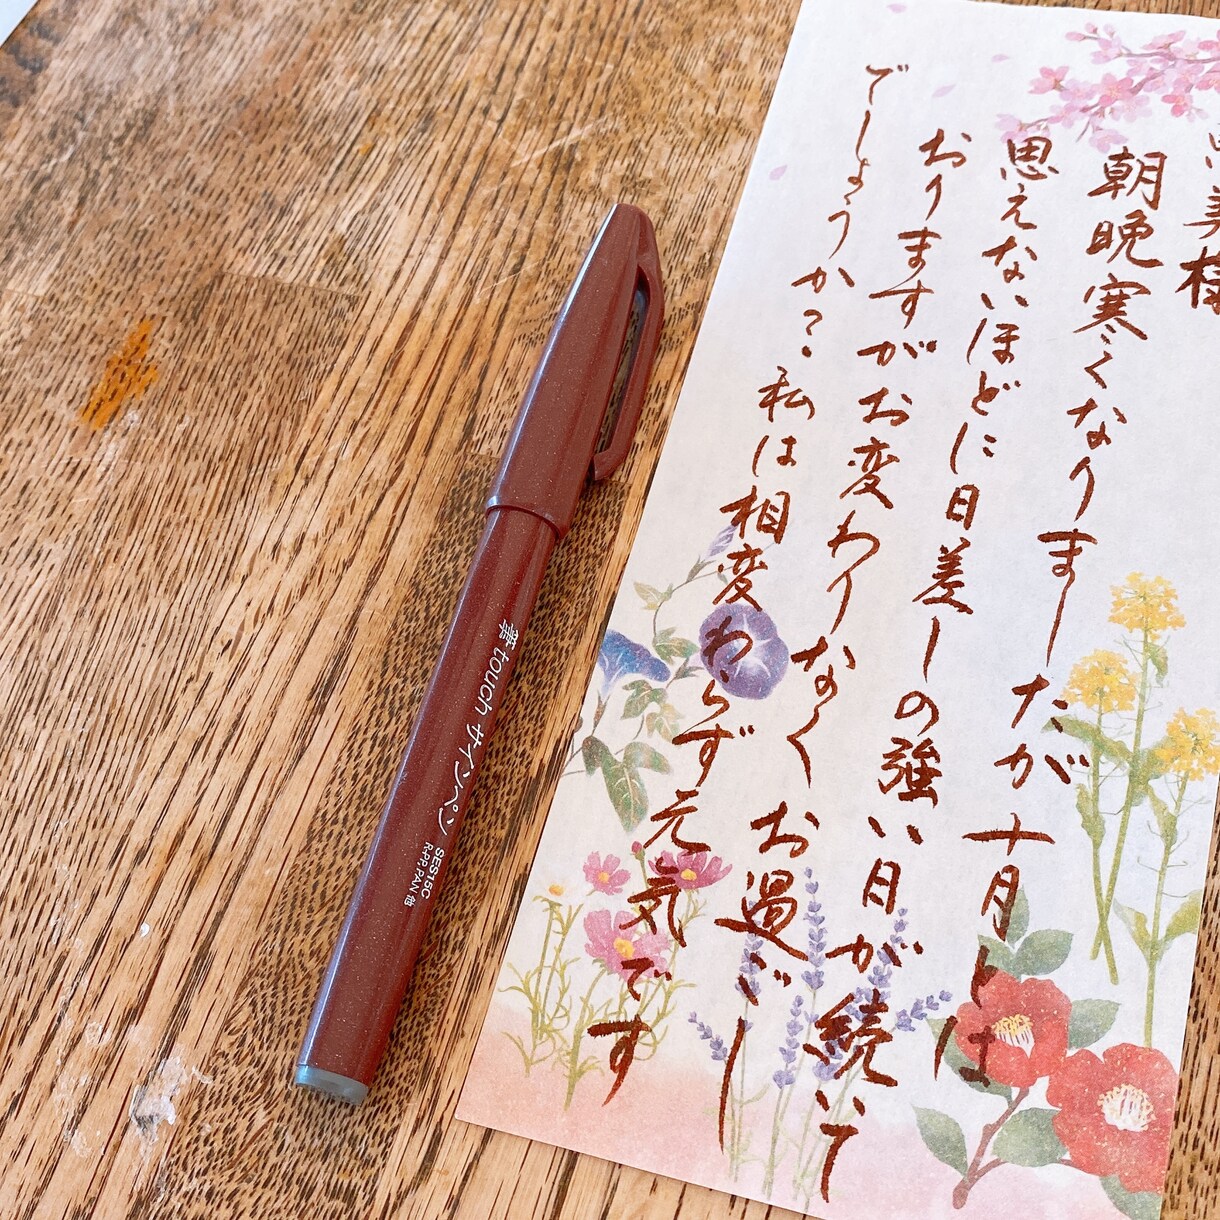 美様
朝晩寒くなりましたが十月とは
思えないほどに日差しの強い日が続いて
おりますがお変わりなくお過ごし
でしょうか？私は相変わらず元気です
筆touchサインペン
SES15C
R-PP,PAN 他